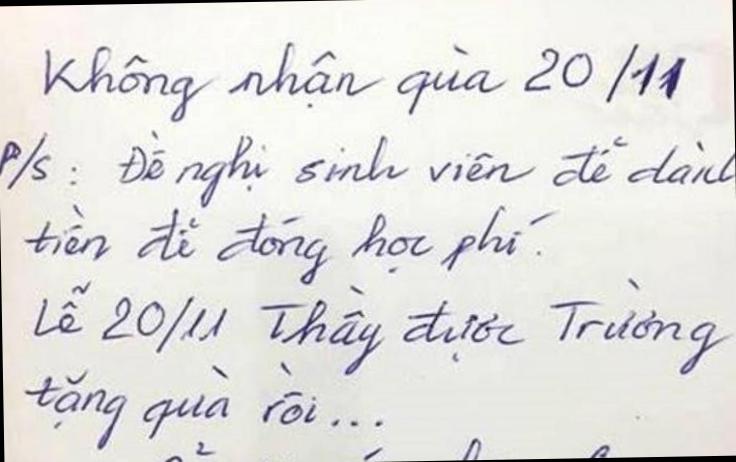 Không nhận quà 20/11
P/s: Đề nghị sinh viên để dành
tiền để đóng học phí.
Lễ 20/11 Thầy được Trường
tặng quà rồi...